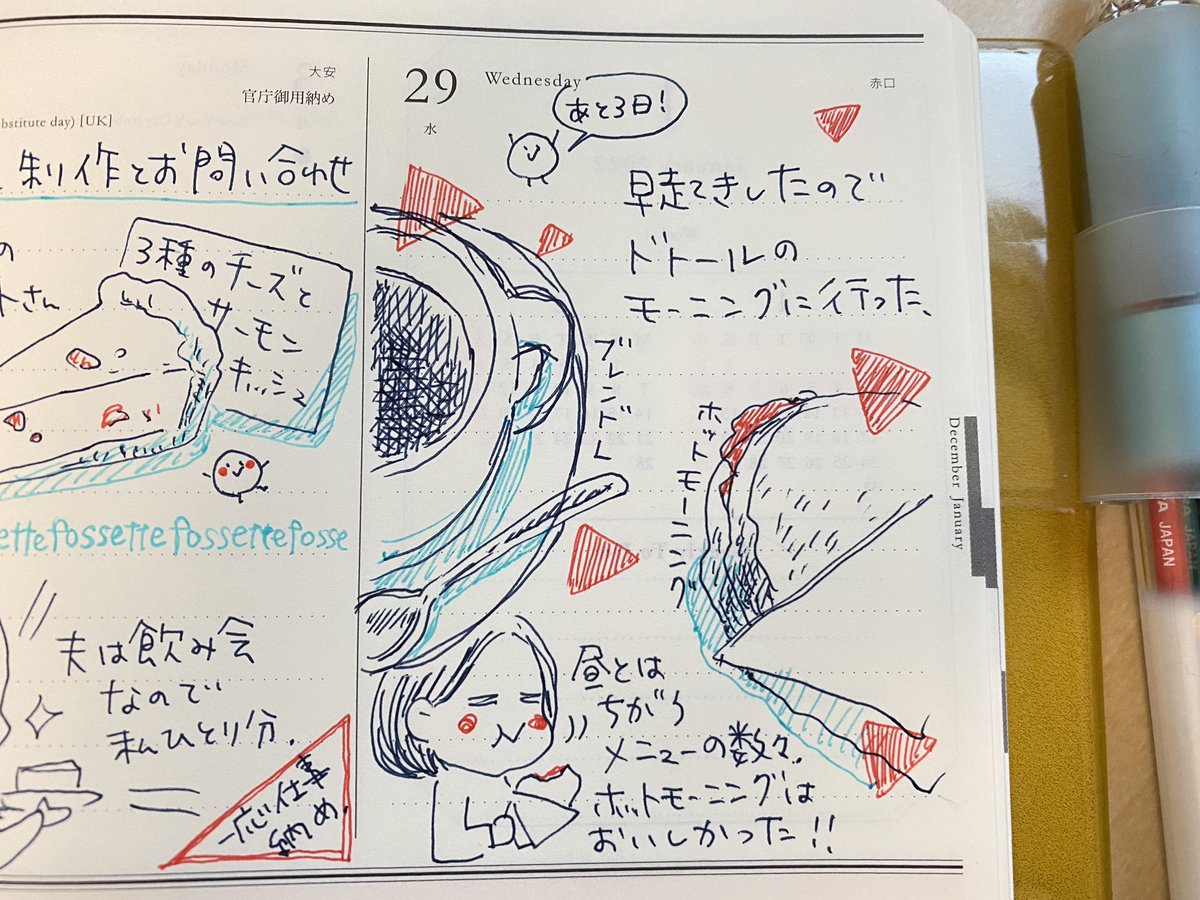 大安
官庁御用納め
bstitute day) [UK]
制作とお問い合わせ
の
トさん
3種のチーズと
サーモン
キッシュ
ettefossettefossettefosse
夫は飲み会
なので
私ひとり分.
一応仕事
納め.
29
Wednesday
水
赤口
あと3日!
早起きしたので
ドトールの
モーニングに行った、
ブレンドL
ホットモーニング
昼とは
ちがう
メニューの数々.
ホットモーニングは
おいしかった!!
December January
JAPAN